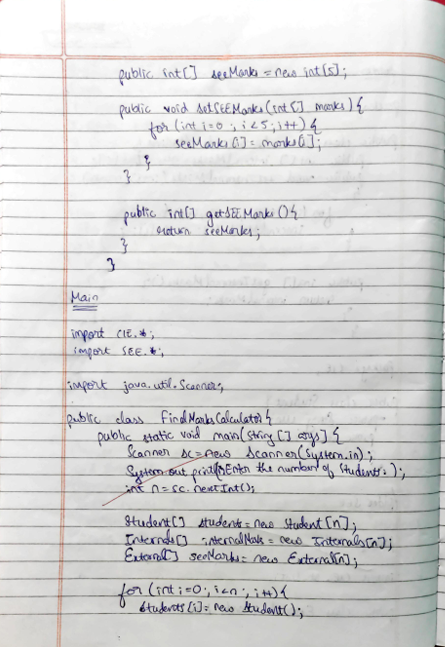 public int[] seeMarks = new int[5];
public void setSEEMarks(int[] marks){
for(int i=0; i<5; i++){
seeMarks[i]=marks[i];
}
}
public int[] getSEEMarks(){
return seeMarks;
}
}
Main
import CIE.*;
import SEE.*;
import java.util.Scanner;
public class FindMarksCalculator{
public static void main(String[] args){
Scanner sc=new Scanner(System.in);
System.out.println("Enter the number of students:");
int n=sc.nextInt();
Student[] students=new Student[n];
Internals[] internalMarks = new Internals[n];
External[] seeMarks = new External[n];
for (int i=0; i<n; i++){
students[i]=new Student();